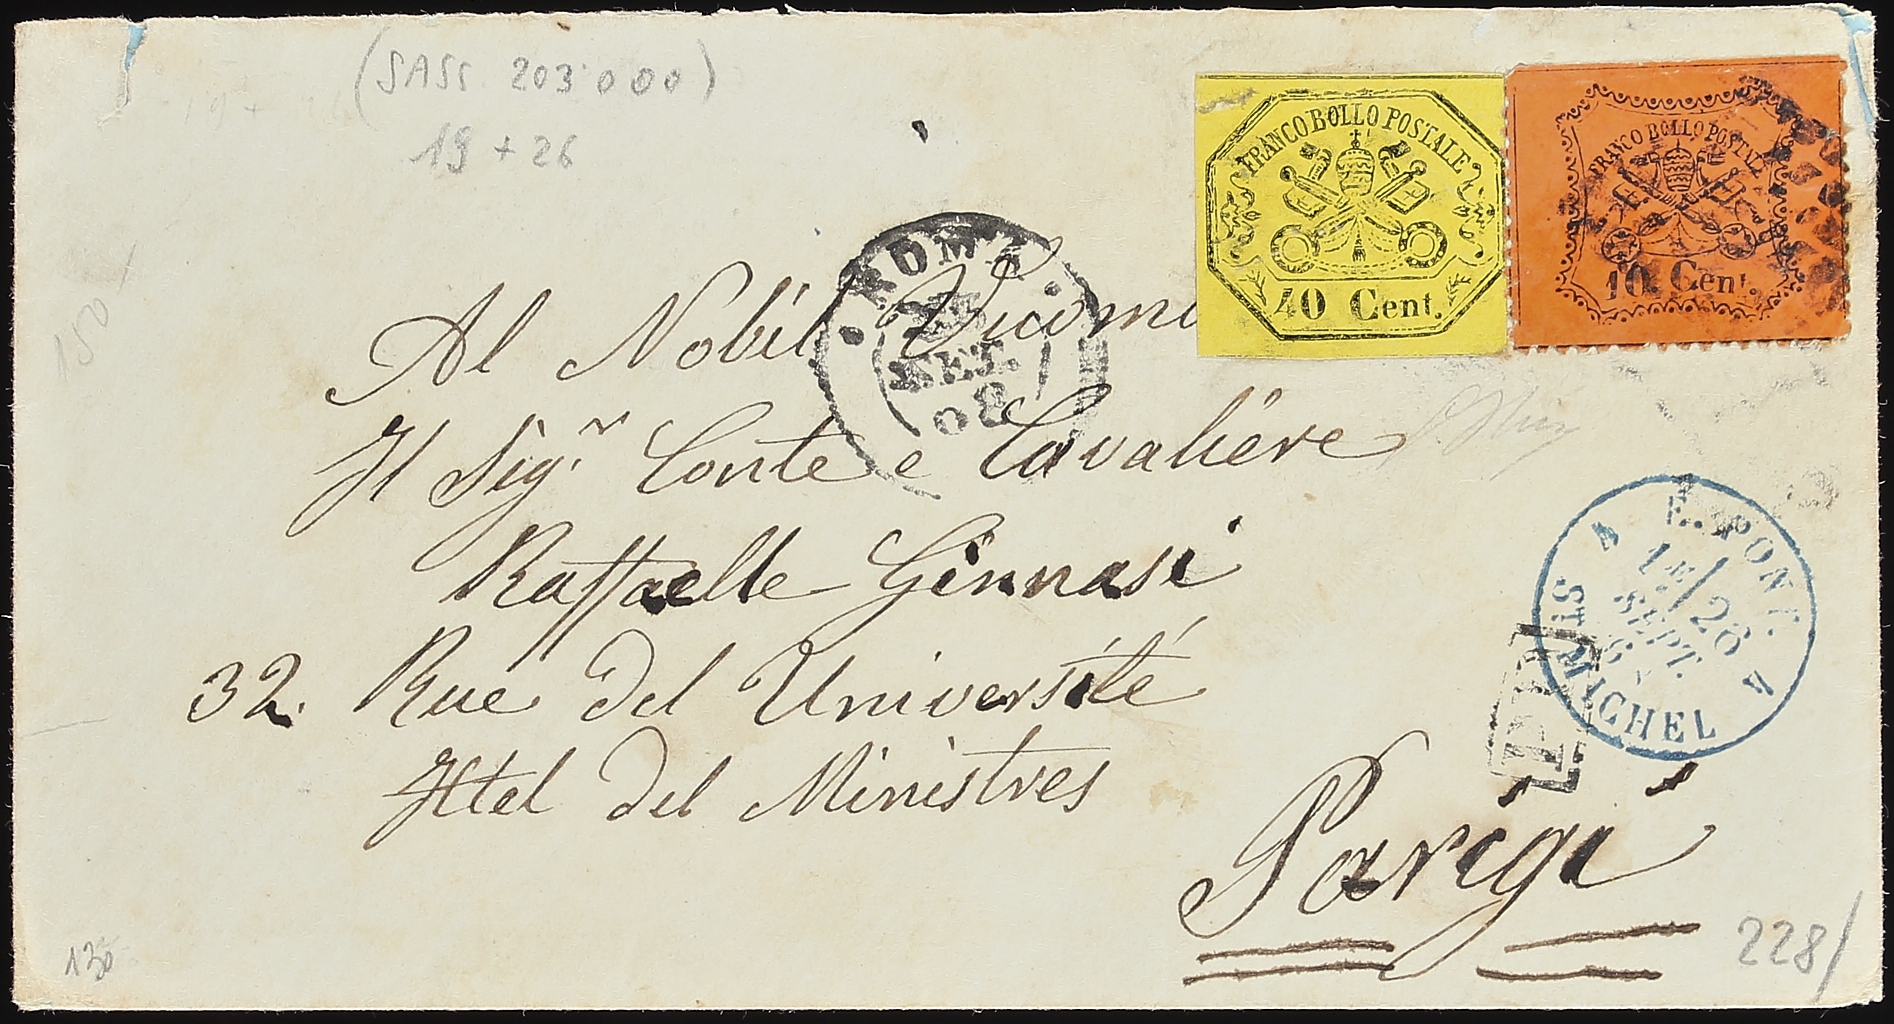 (SASS. 203.000)
19 + 26
FRANCO BOLLO POSTALE
40 Cent.
FRANCO BOLLO POSTALE
10 Cent.
ROMA
SET.
68
150
Al Nobil Vuomo
Il Sig.r Conte e Cavaliere
Raffaelle Ginnasi
32. Rue del Université
Htel del Ministres
Parigi
E. PONT. 4
26
SEPT.
ST MICHEL A
PD
130
228/